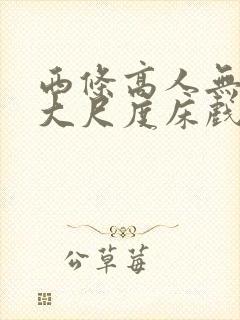 西條高人無
大尺度床戲
公草莓